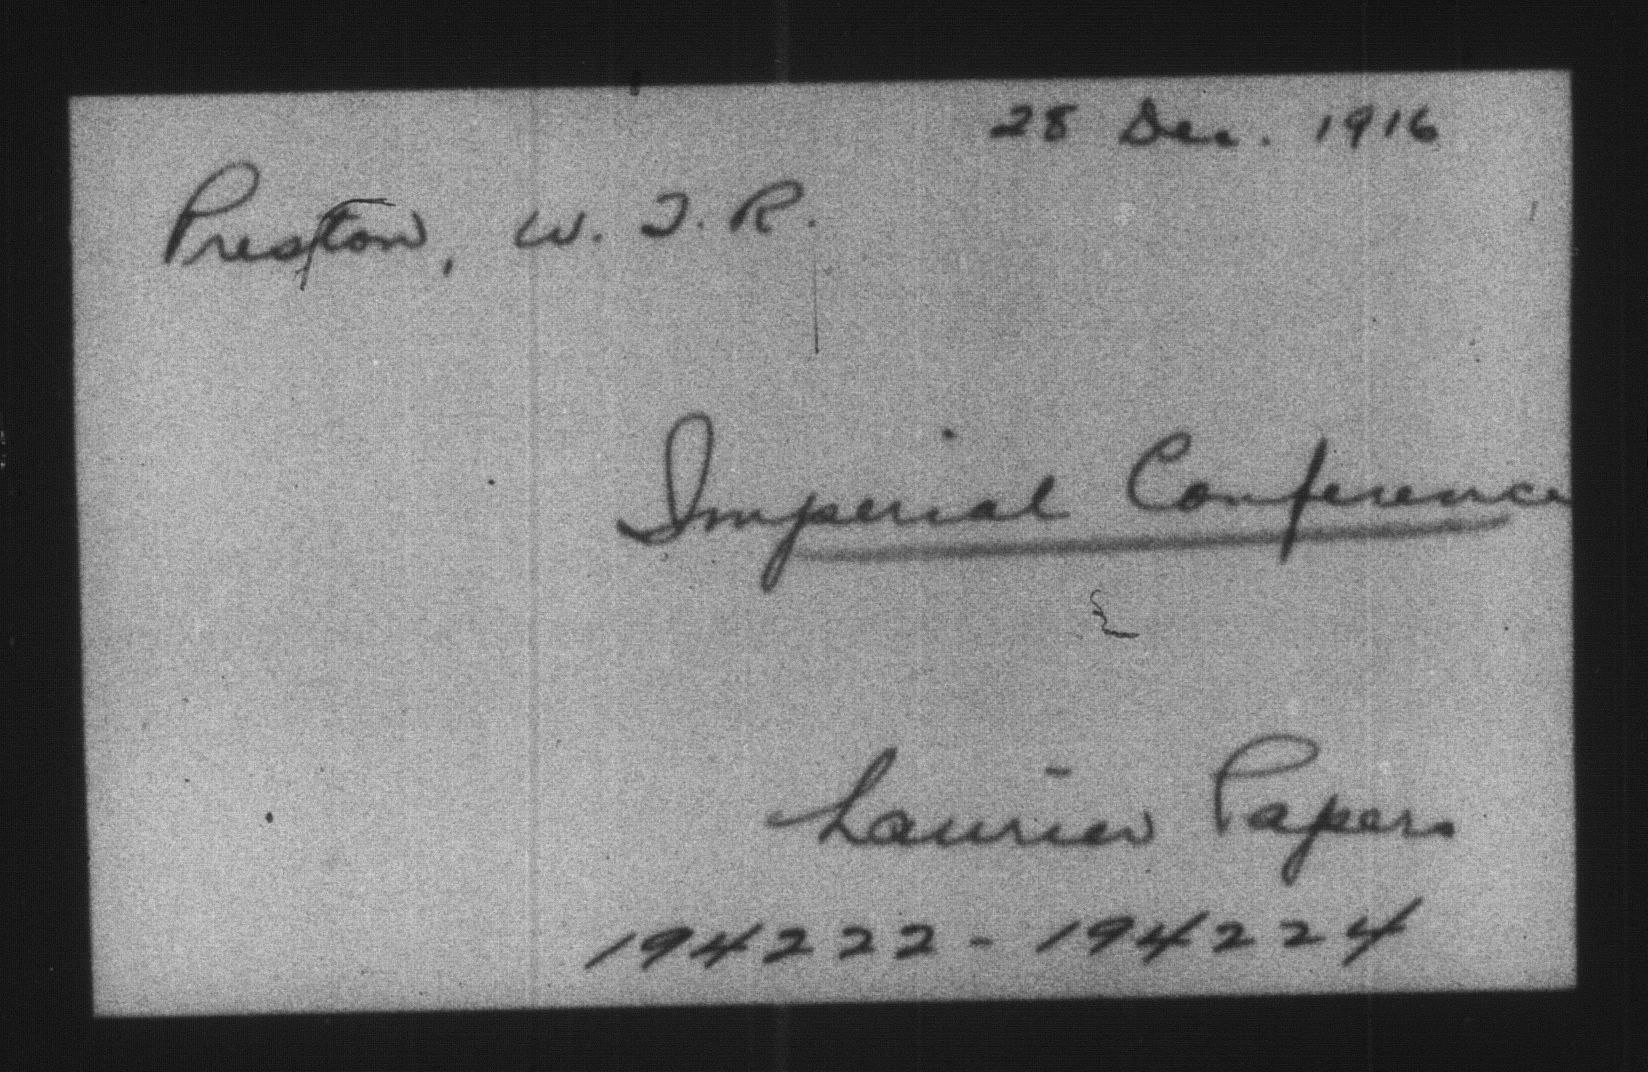 28 Dec. 1916
Preston, W. T. R.
Imperial Conference
Laurier Papers
194222-194224